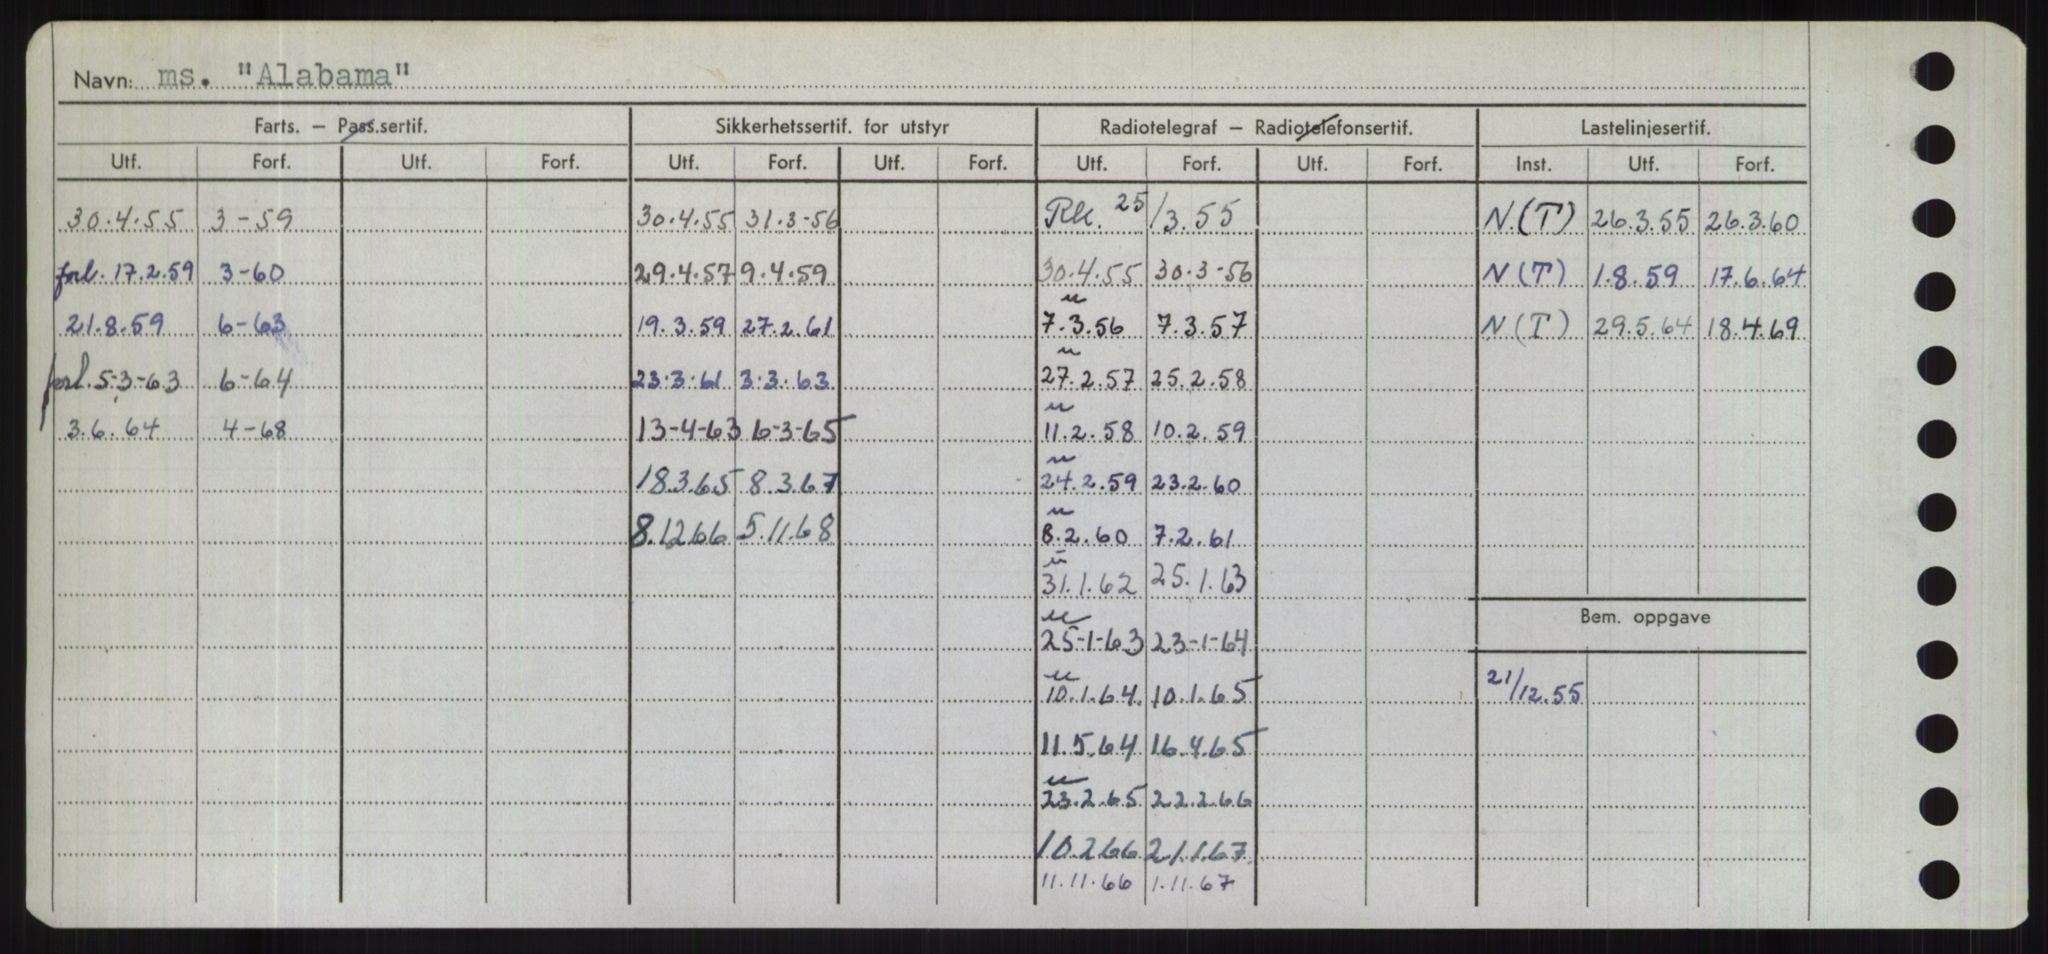 Navn: ms. "Alabama"
Farts. – Pass.sertif. Sikkerhetssertif. for utstyr Radiotelegraf – Radiotelefonsertif. Lastelinjesertif.
Utf. Forf. Utf. Forf. Utf. Forf. Utf. Forf. Utf. Forf. Utf. Forf. Inst. Utf. Forf.
30.4.55 3-59 30.4.55 31.3-56 Rk. 25/3.55 N.(T) 26.3.55 26.3.60
forl. 17.2.59 3-60 29.4.57 9.4.59 30.4.55 30.3-56 N(T) 1.8.59 17.6.64
21.8.59 6-63 19.3.59 27.2.61 u 7.3.56 7.3.57 N(T) 29.5.64 18.4.69
forl. 5-3-63 6-64 23.3.61 3.3.63 u 27.2.57 25.2.58
3.6.64 4-68 13-4-63 6-3-65 u 11.2.58 10.2.59
18.3.65 8.3.67 u 24.2.59 23.2.60
8.12.66 5.11.68 u 8.2.60 7.2.61
u 31.1.62 25.1.63
Bem. oppgave
u 25-1-63 23-1-64
u 10.1.64. 10.1.65 21/12.55
11.5.64 16.4.65
u 23.2.65 22.2.66
10.2.66 21.1.67
11.11.66 1.11.67